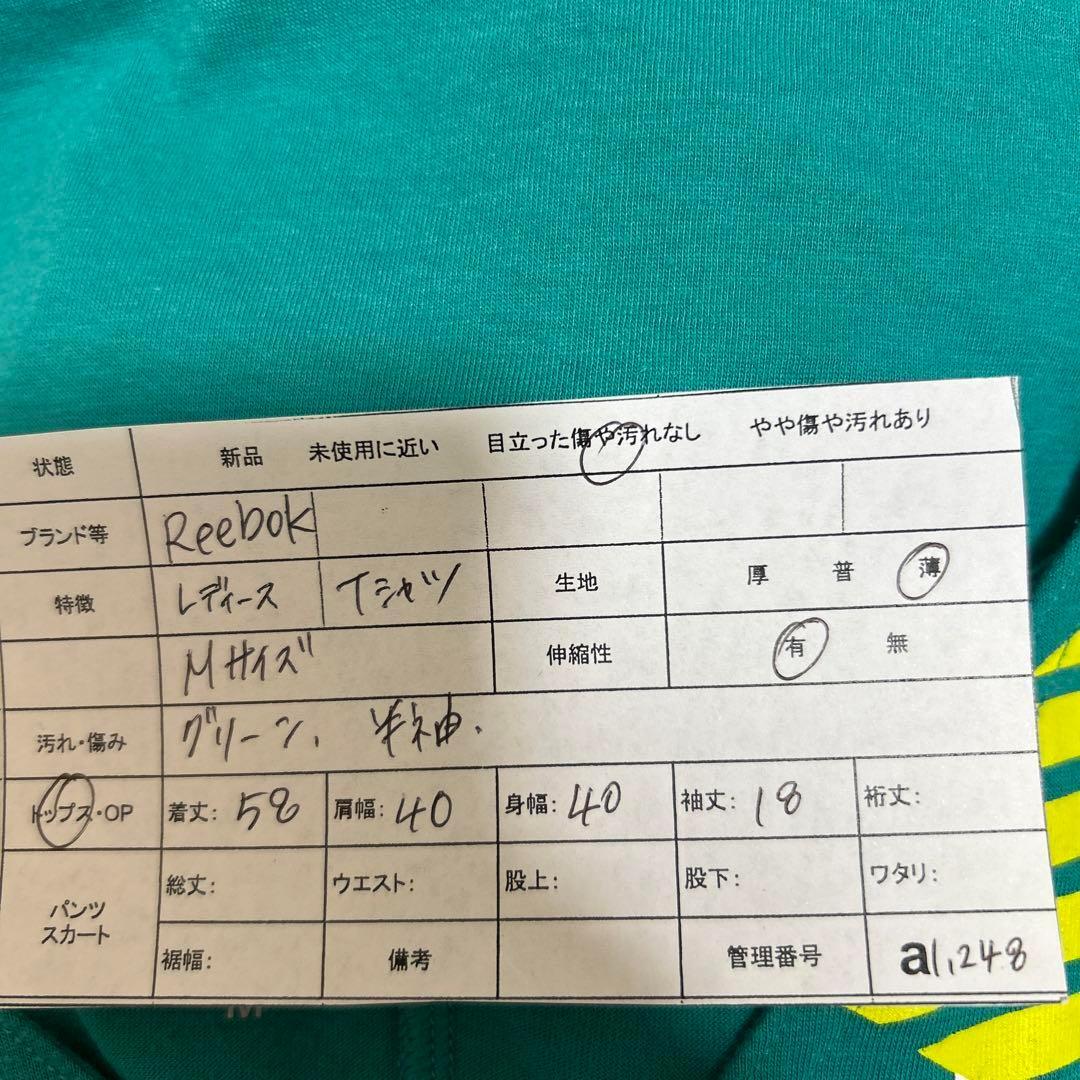 状態 新品 未使用に近い 目立った傷や汚れなし やや傷や汚れあり
ブランド等 Reebok
特徴 レディース Tシャツ 生地 厚 普 薄
Mサイズ 伸縮性 有 無
汚れ・傷み グリーン、半袖.
トップス・OP 着丈: 58 肩幅: 40 身幅: 40 袖丈: 18 裄丈:
パンツ スカート 総丈: ウエスト: 股上: 股下: ワタリ:
裾幅: 備考 管理番号 a1,248
M